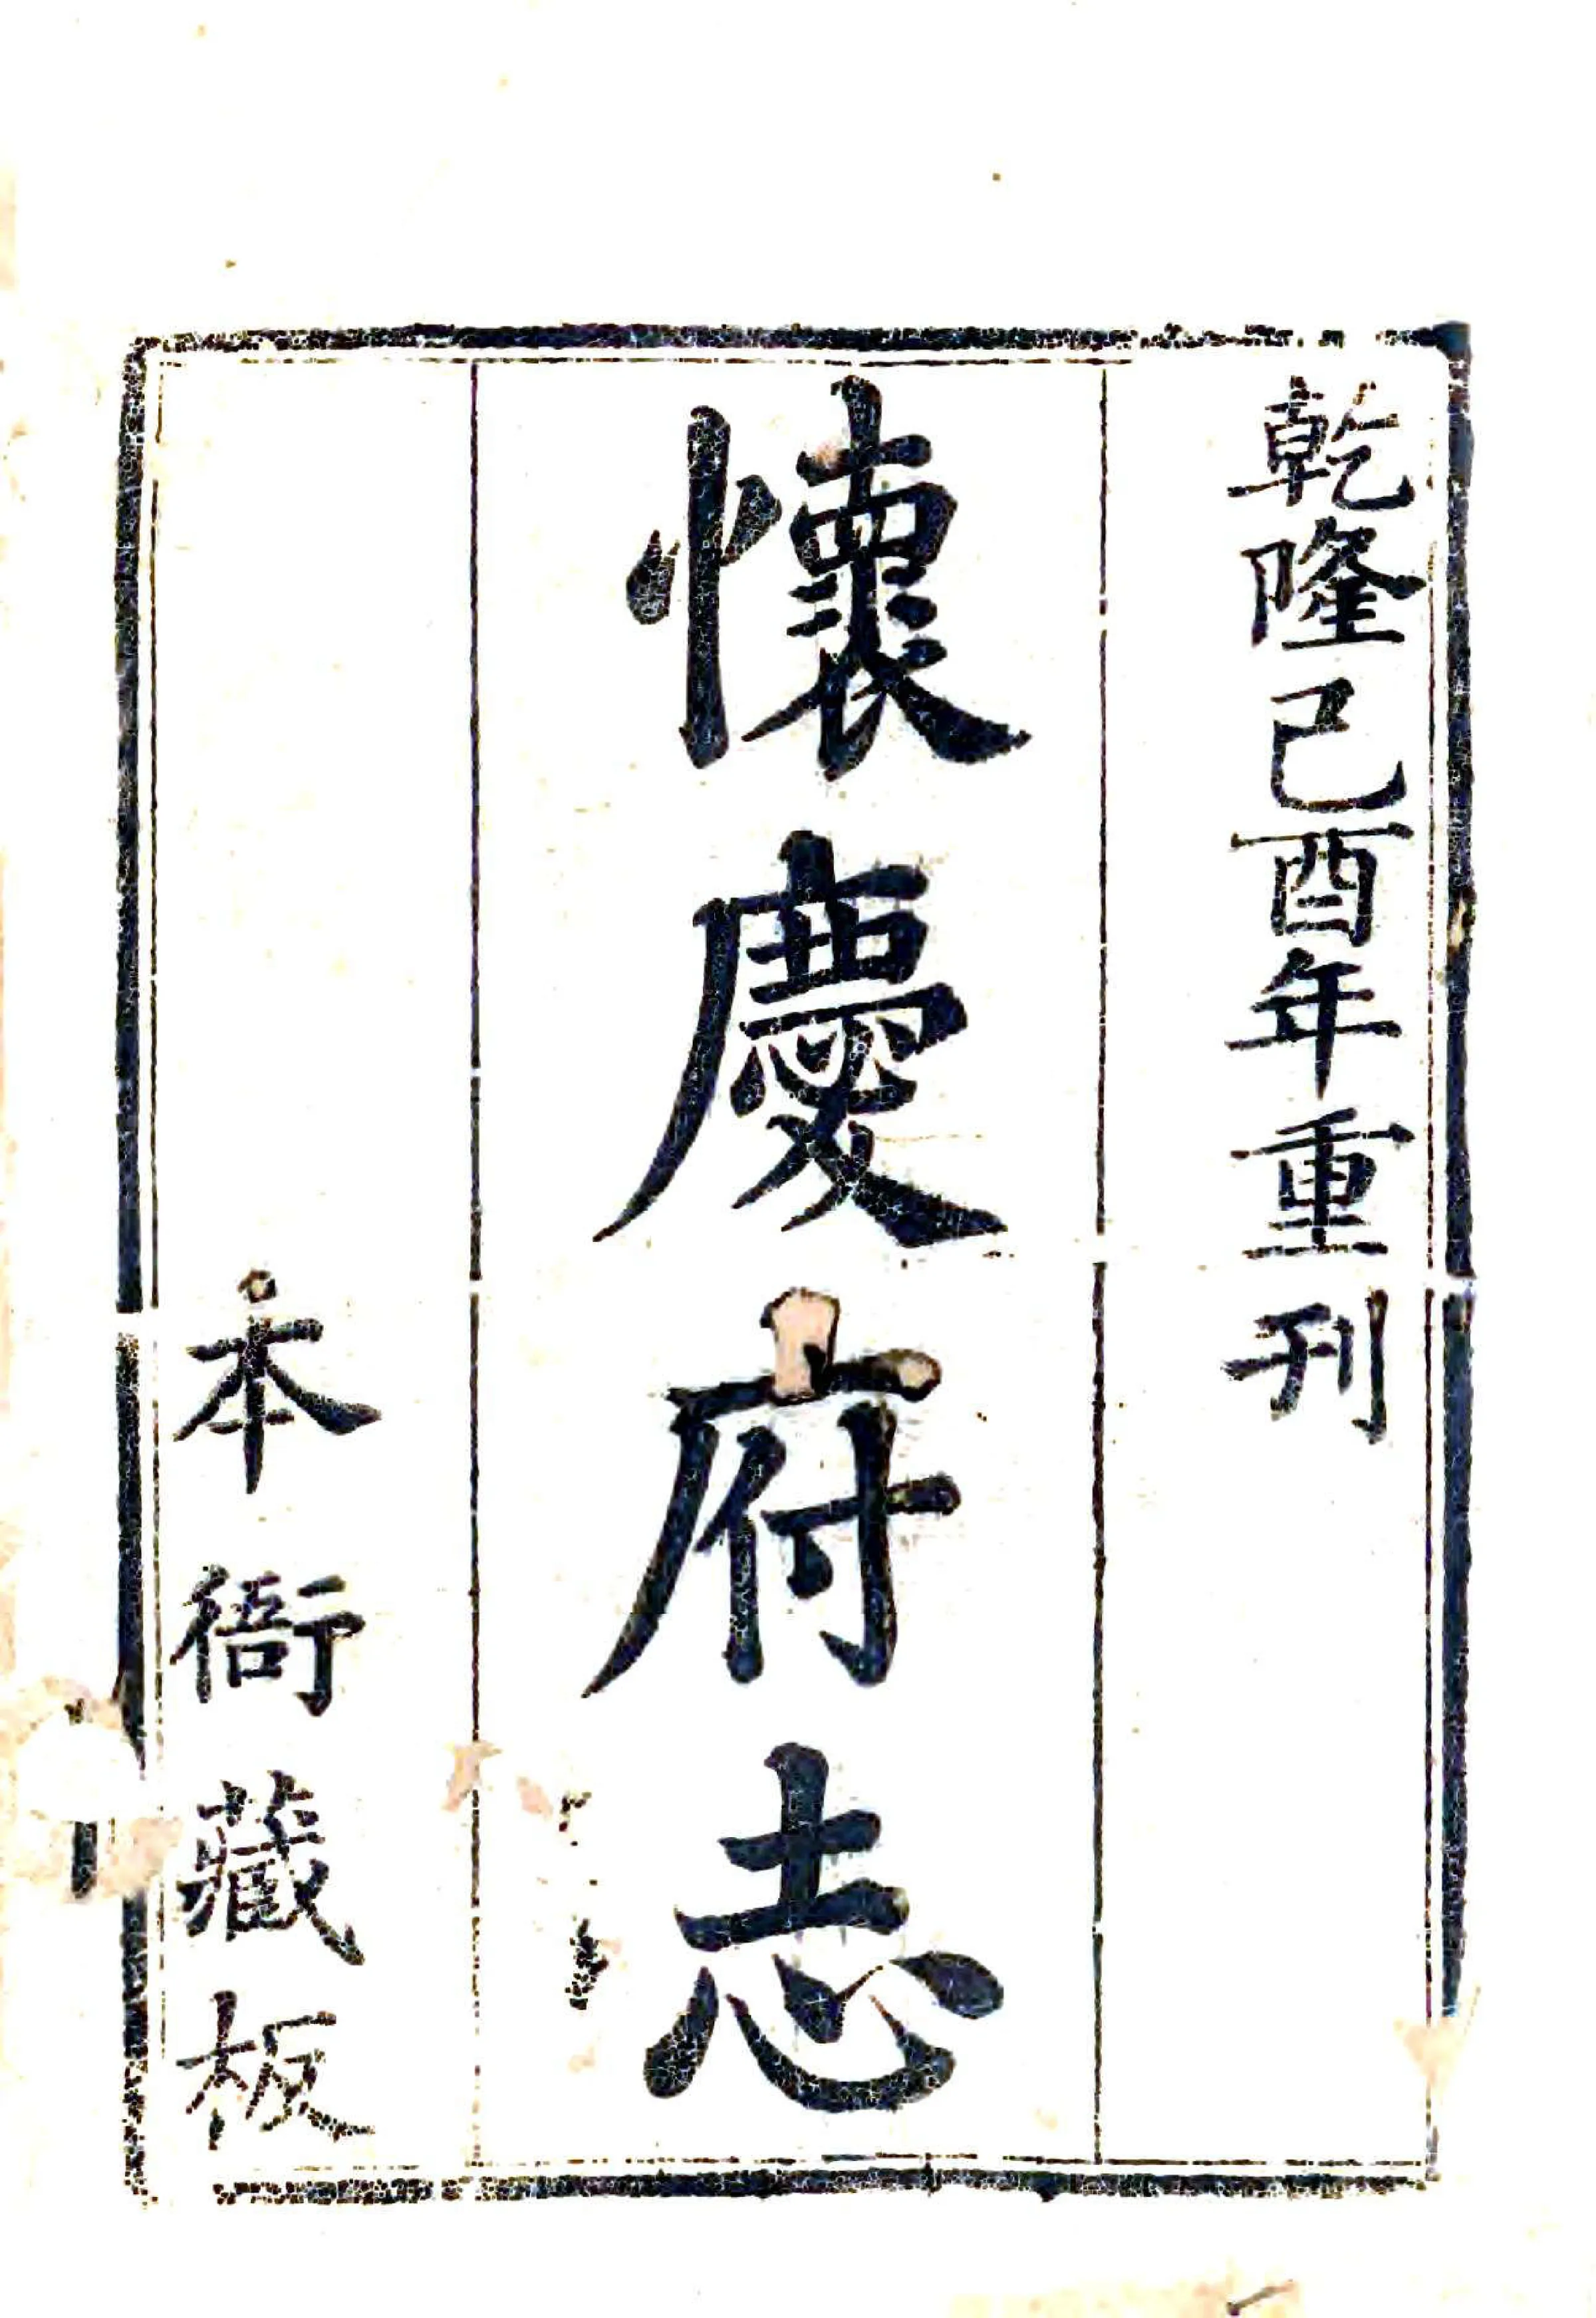 乾隆己酉年重刊
懷慶府志
本衙藏板